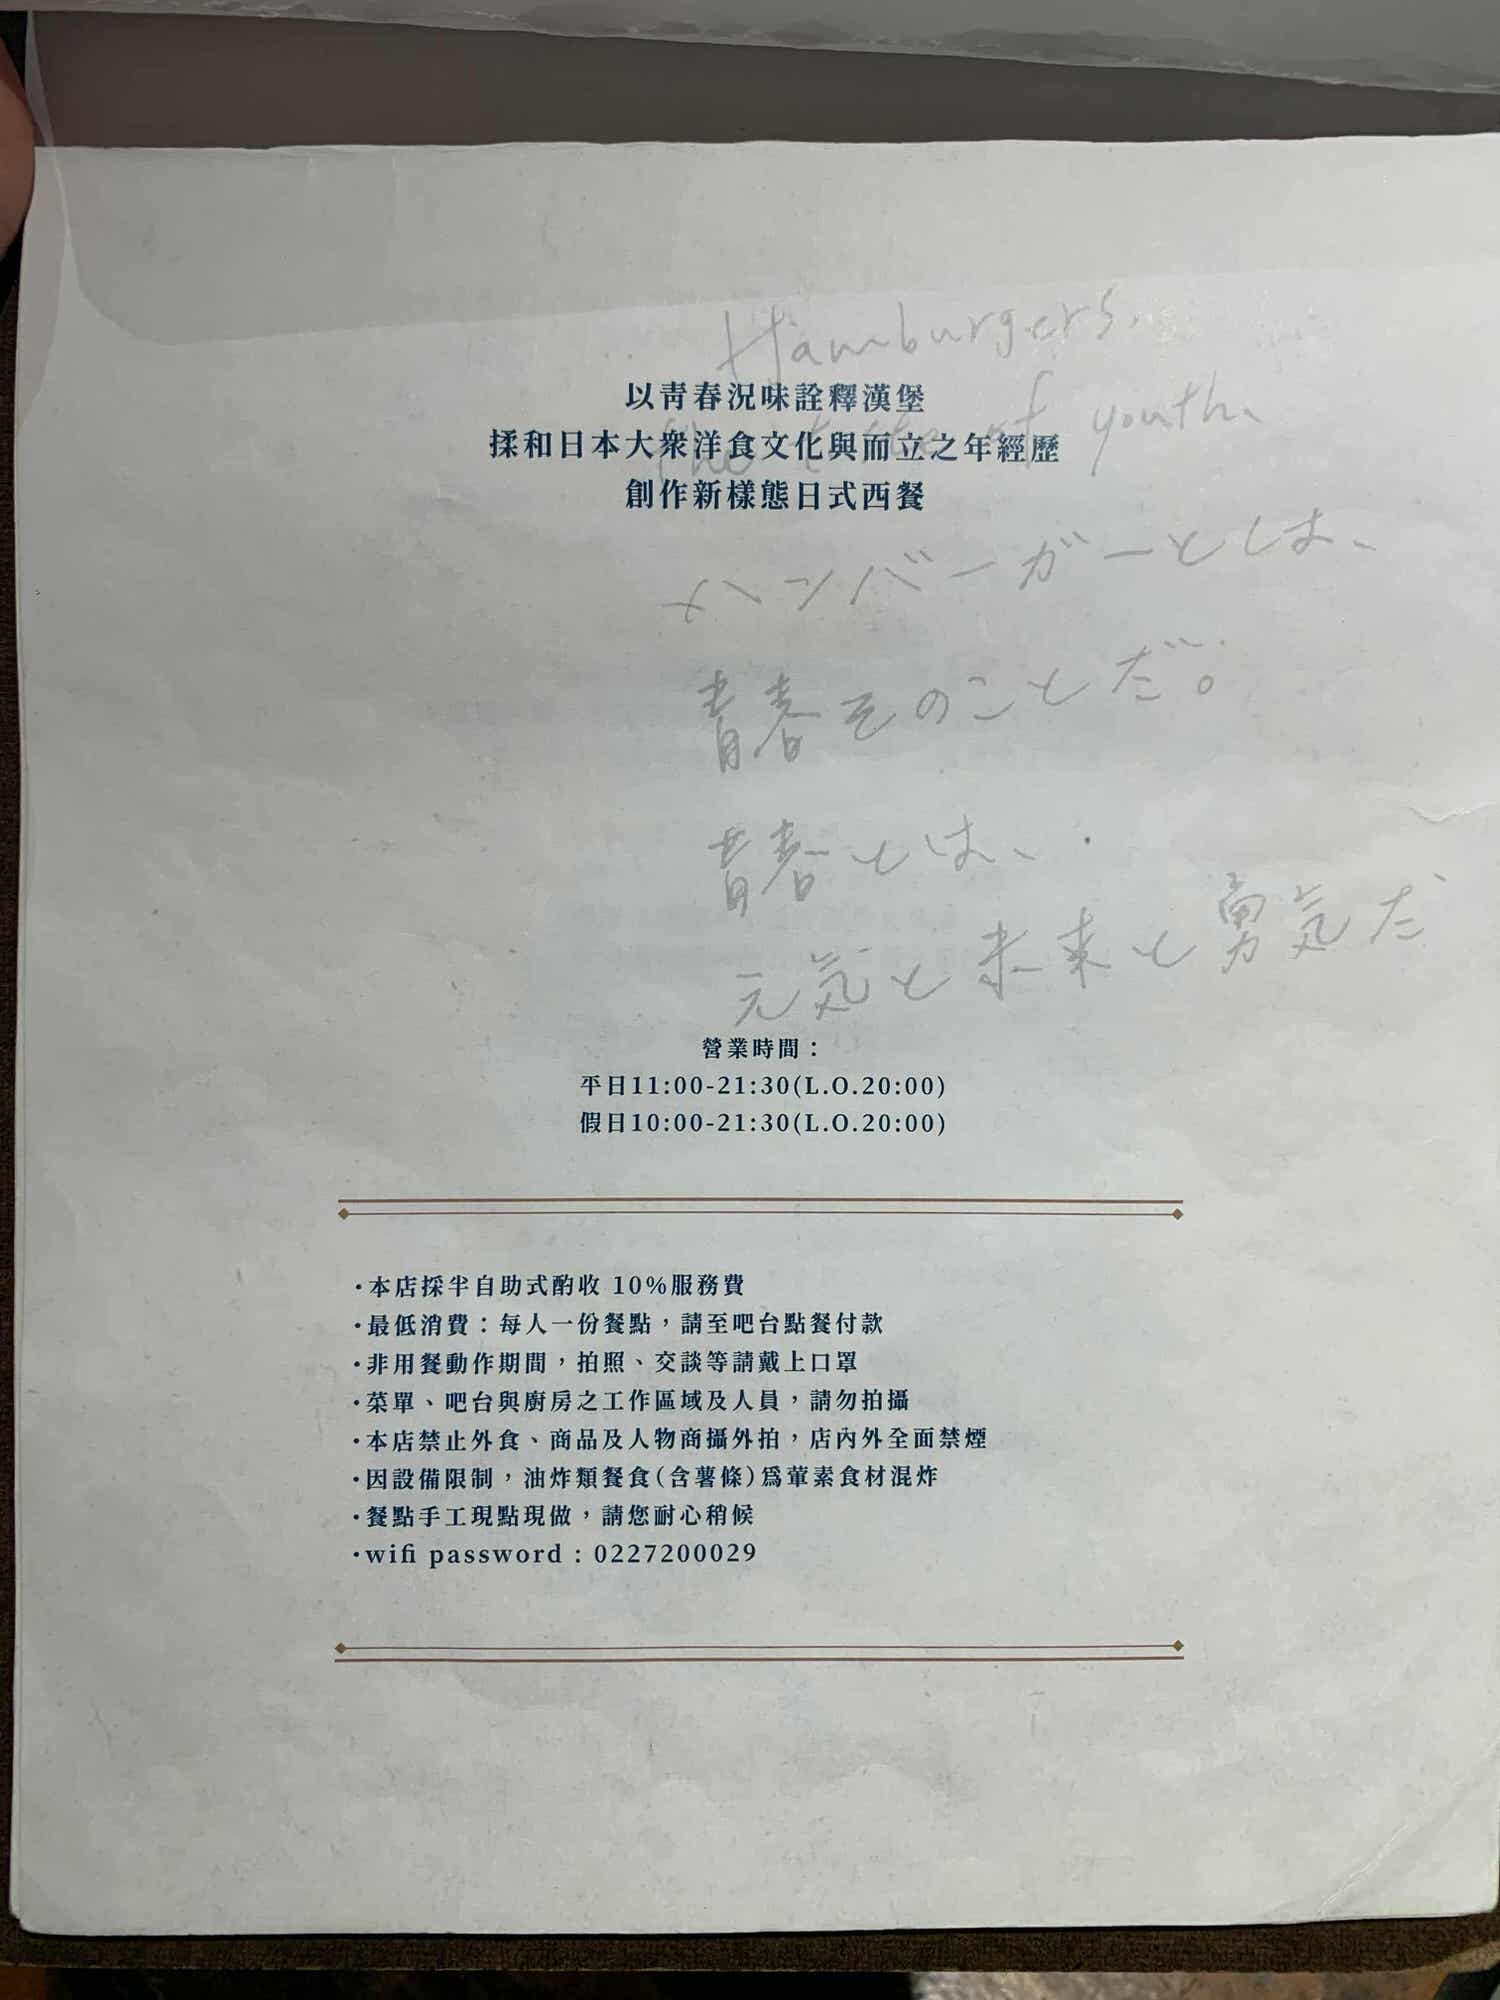 Hamburgers.
以靑春況味詮釋漢堡
the taste of youth、
揉和日本大衆洋食文化與而立之年經歷
創作新樣態日式西餐
ハンバーガーとは、
青春そのことだ。
青春とは、
元気と未来と勇気だ
營業時間：
平日11:00-21:30(L.O.20:00)
假日10:00-21:30(L.O.20:00)
·本店採半自助式酌收 10%服務費
·最低消費：每人一份餐點，請至吧台點餐付款
·非用餐動作期間，拍照、交談等請戴上口罩
·菜單、吧台與廚房之工作區域及人員，請勿拍攝
·本店禁止外食、商品及人物商攝外拍，店內外全面禁煙
·因設備限制，油炸類餐食(含薯條)爲葷素食材混炸
·餐點手工現點現做，請您耐心稍候
·wifi password : 0227200029